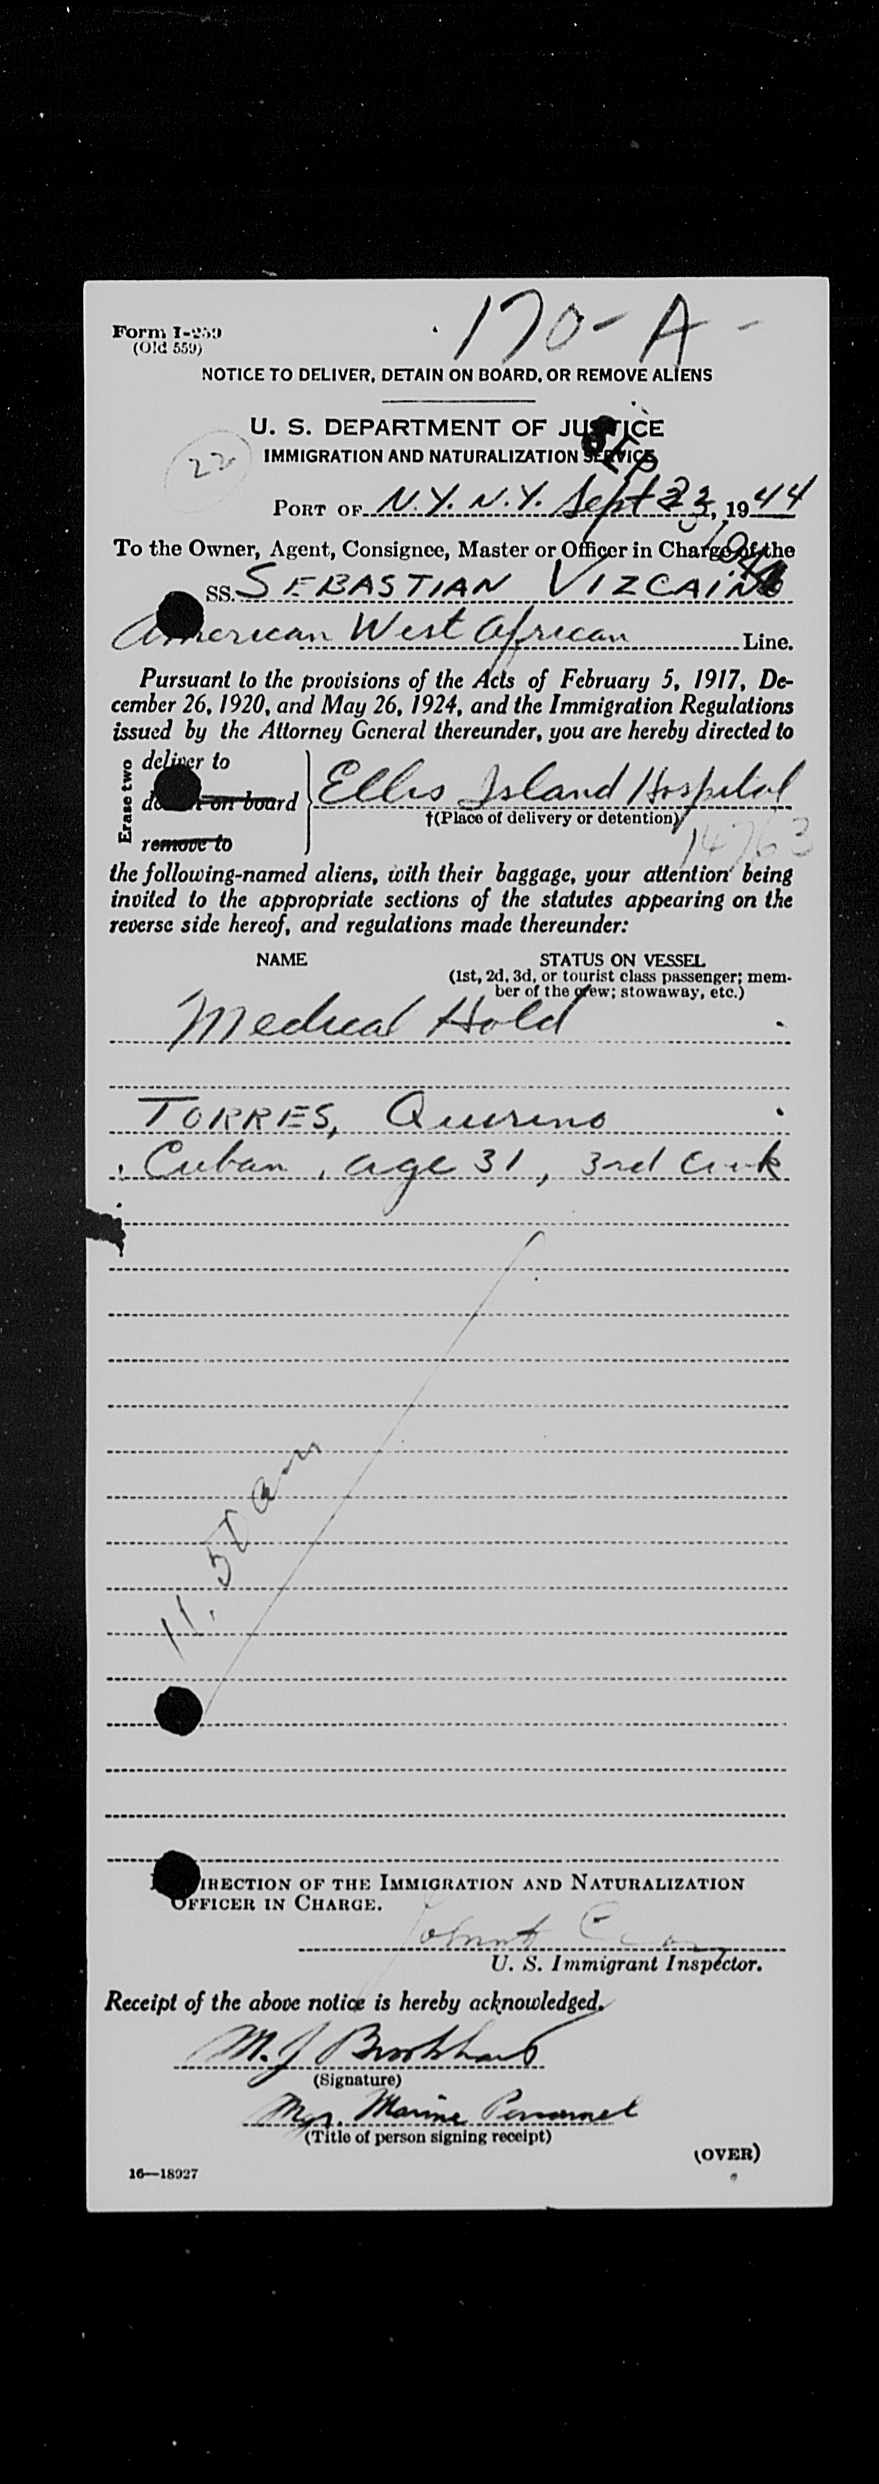 170-A -
Form I-259
(Old 559)
NOTICE TO DELIVER, DETAIN ON BOARD, OR REMOVE ALIENS
U. S. DEPARTMENT OF JUSTICE
IMMIGRATION AND NATURALIZATION SERVICE
22
SEP
PORT OF N.Y. N.Y. Sept 1944
To the Owner, Agent, Consignee, Master or Officer in Charge of the
SS. SEBASTIAN VIZCAINO
American West African Line.
Pursuant to the provisions of the Acts of February 5, 1917, De-
cember 26, 1920, and May 26, 1924, and the Immigration Regulations
issued by the Attorney General thereunder, you are hereby directed to
Erase two
deliver to
detain on board
remove to
Ellis Island Hospital
†(Place of delivery or detention)
14763
the following-named aliens, with their baggage, your attention being
invited to the appropriate sections of the statutes appearing on the
reverse side hereof, and regulations made thereunder:
NAME STATUS ON VESSEL
(1st, 2d, 3d, or tourist class passenger; mem-
ber of the crew; stowaway, etc.)
Medical Hold
TORRES, Quirino
Cuban, age 31, 3rd Cook
11.50 am
DIRECTION OF THE IMMIGRATION AND NATURALIZATION
OFFICER IN CHARGE.
U. S. Immigrant Inspector.
Receipt of the above notice is hereby acknowledged.
M. J.
(Signature)
Mgr. Marine Personnel
(Title of person signing receipt)
(OVER)
16—18927